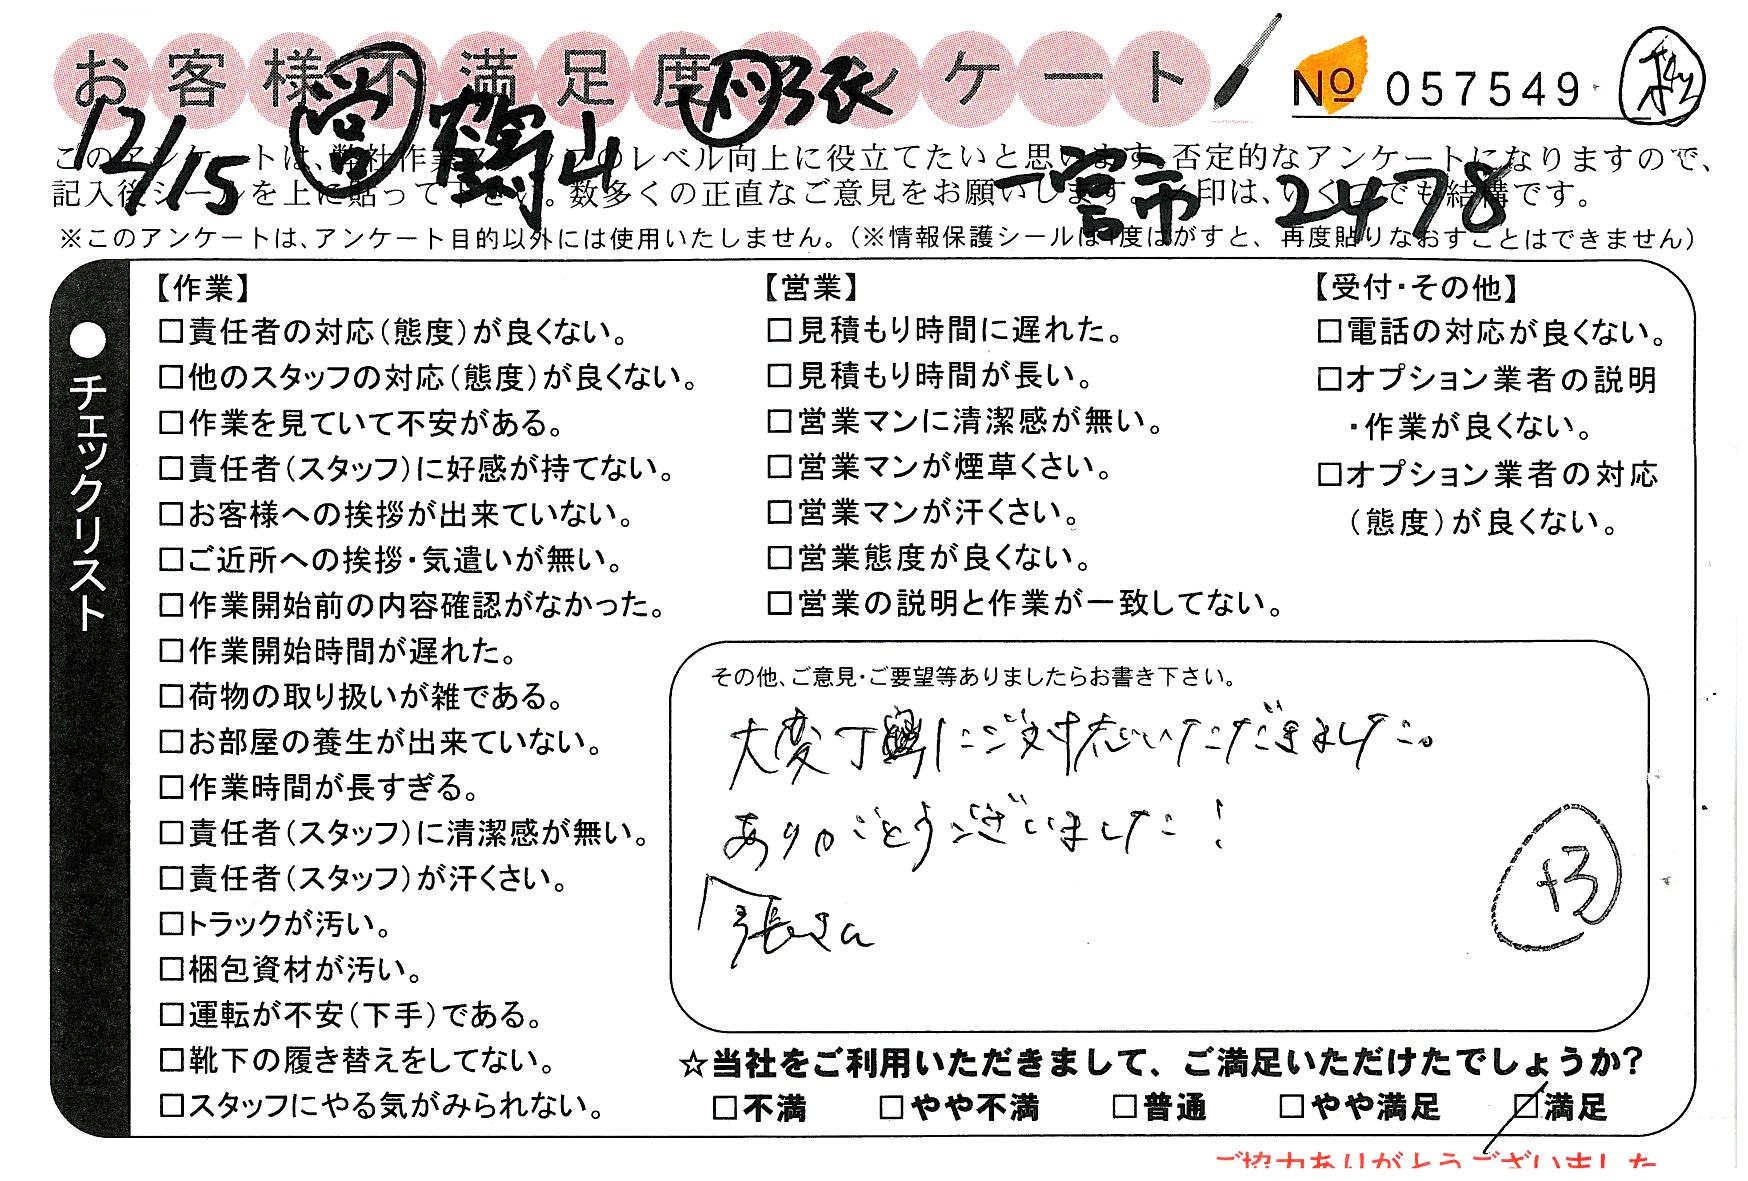 お客様不満足度アンケート
№ 057549
12/15 営 鶴山 作 張
一宮市 2478
このアンケートは、弊社作業スタッフのレベル向上に役立てたいと思います。否定的なアンケートになりますので、
記入後シールを上に貼って下さい。数多くの正直なご意見をお願いします。レ印は、いくつでも結構です。
※このアンケートは、アンケート目的以外には使用いたしません。（※情報保護シールは1度はがすと、再度貼りなおすことはできません）
●チェックリスト
【作業】
□責任者の対応（態度）が良くない。
□他のスタッフの対応（態度）が良くない。
□作業を見ていて不安がある。
□責任者（スタッフ）に好感が持てない。
□お客様への挨拶が出来ていない。
□ご近所への挨拶・気遣いが無い。
□作業開始前の内容確認がなかった。
□作業開始時間が遅れた。
□荷物の取り扱いが雑である。
□お部屋の養生が出来ていない。
□作業時間が長すぎる。
□責任者（スタッフ）に清潔感が無い。
□責任者（スタッフ）が汗くさい。
□トラックが汚い。
□梱包資材が汚い。
□運転が不安（下手）である。
□靴下の履き替えをしてない。
□スタッフにやる気がみられない。
【営業】
□見積もり時間に遅れた。
□見積もり時間が長い。
□営業マンに清潔感が無い。
□営業マンが煙草くさい。
□営業マンが汗くさい。
□営業態度が良くない。
□営業の説明と作業が一致してない。
【受付・その他】
□電話の対応が良くない。
□オプション業者の説明
・作業が良くない。
□オプション業者の対応
（態度）が良くない。
その他、ご意見・ご要望等ありましたらお書き下さい。
大変丁寧にご対応いただきました。
ありがとうございました！
張さん
+3
☆当社をご利用いただきまして、ご満足いただけたでしょうか?
□不満 □やや不満 □普通 □やや満足 □満足
ご協力ありがとうございました